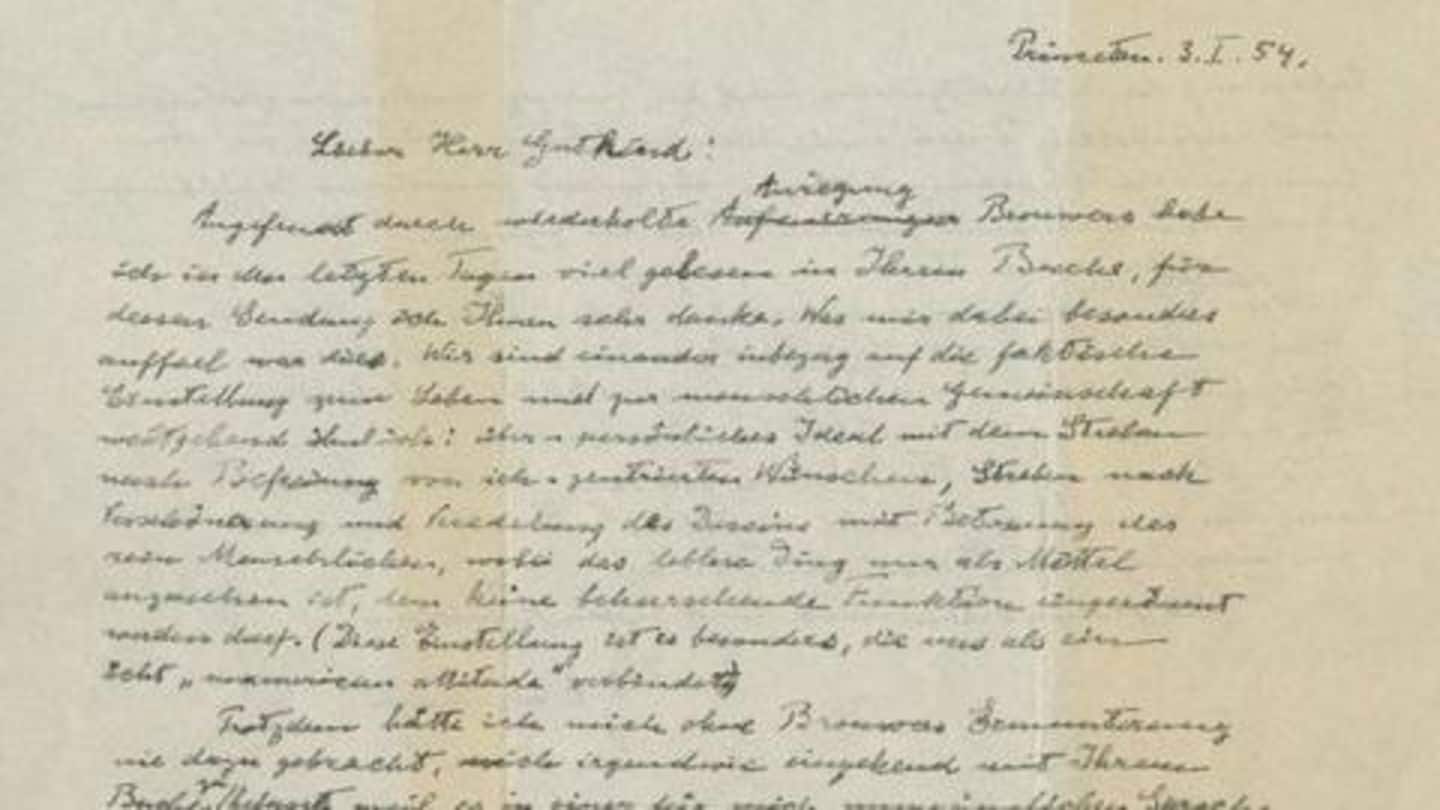 Princeton. 3. I. 54.
Lieber Herr Gutkind!
Anregung
Angefeuert durch wiederholte Brouwers habe
ich in den letzten Tagen viel gelesen in Ihrem Buche, für
dessen Sendung ich Ihnen sehr danke. Was mir dabei besonders
auffiel war dies. Wir sind einander inbezug auf die faktische
Einstellung zum Leben und zur menschlichen Gemeinschaft
weitgehend ähnlich: persönliches Ideal mit dem Streben
nach Befreiung von ich-zentrierten Wünschen, Streben nach
Verschönerung und Veredelung des Daseins mit Betonung des
rein Menschlichen, wobei das leblose Ding nur als Mittel
anzusehen ist, dem keine beherrschende Funktion eingeräumt
werden darf. (Diese Einstellung ist es besonders, die uns als ein
echt „unamerican attitude“ verbindet)
Trotzdem hätte ich mich ohne Brouwers Ermunterung
nie dazu gebracht, mich irgendwie eingehend mit Ihrem
weil es in einer für mich unzugänglichen Sprache